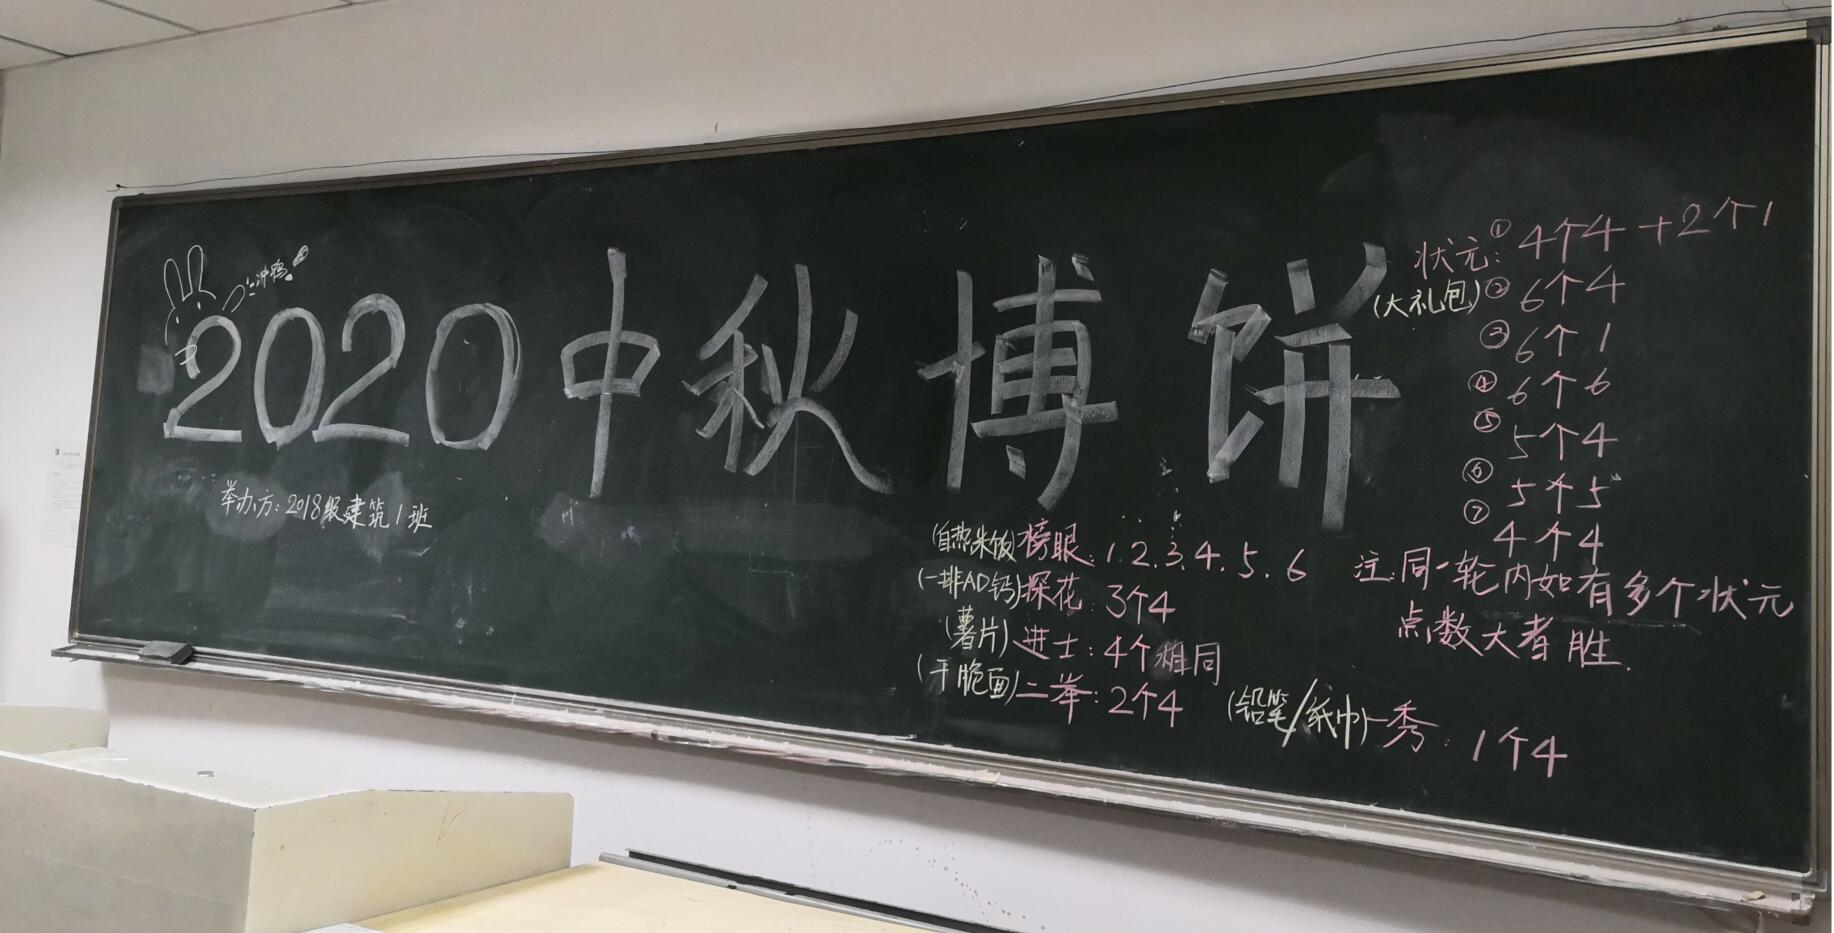 冲鸭!
2020中秋博饼
举办方:2018级建筑1班
状元:
(大礼包)
① 4个4+2个1
② 6个4
③ 6个1
④ 6个6
⑤ 5个4
⑥ 5个5
⑦ 4个4
注:同一轮内如有多个状元
点数大者胜.
(自热米饭)榜眼:1.2.3.4.5.6
(一排AD钙)探花:3个4
(薯片)进士:4个相同
(干脆面)二举:2个4
(铅笔/纸巾)一秀:1个4